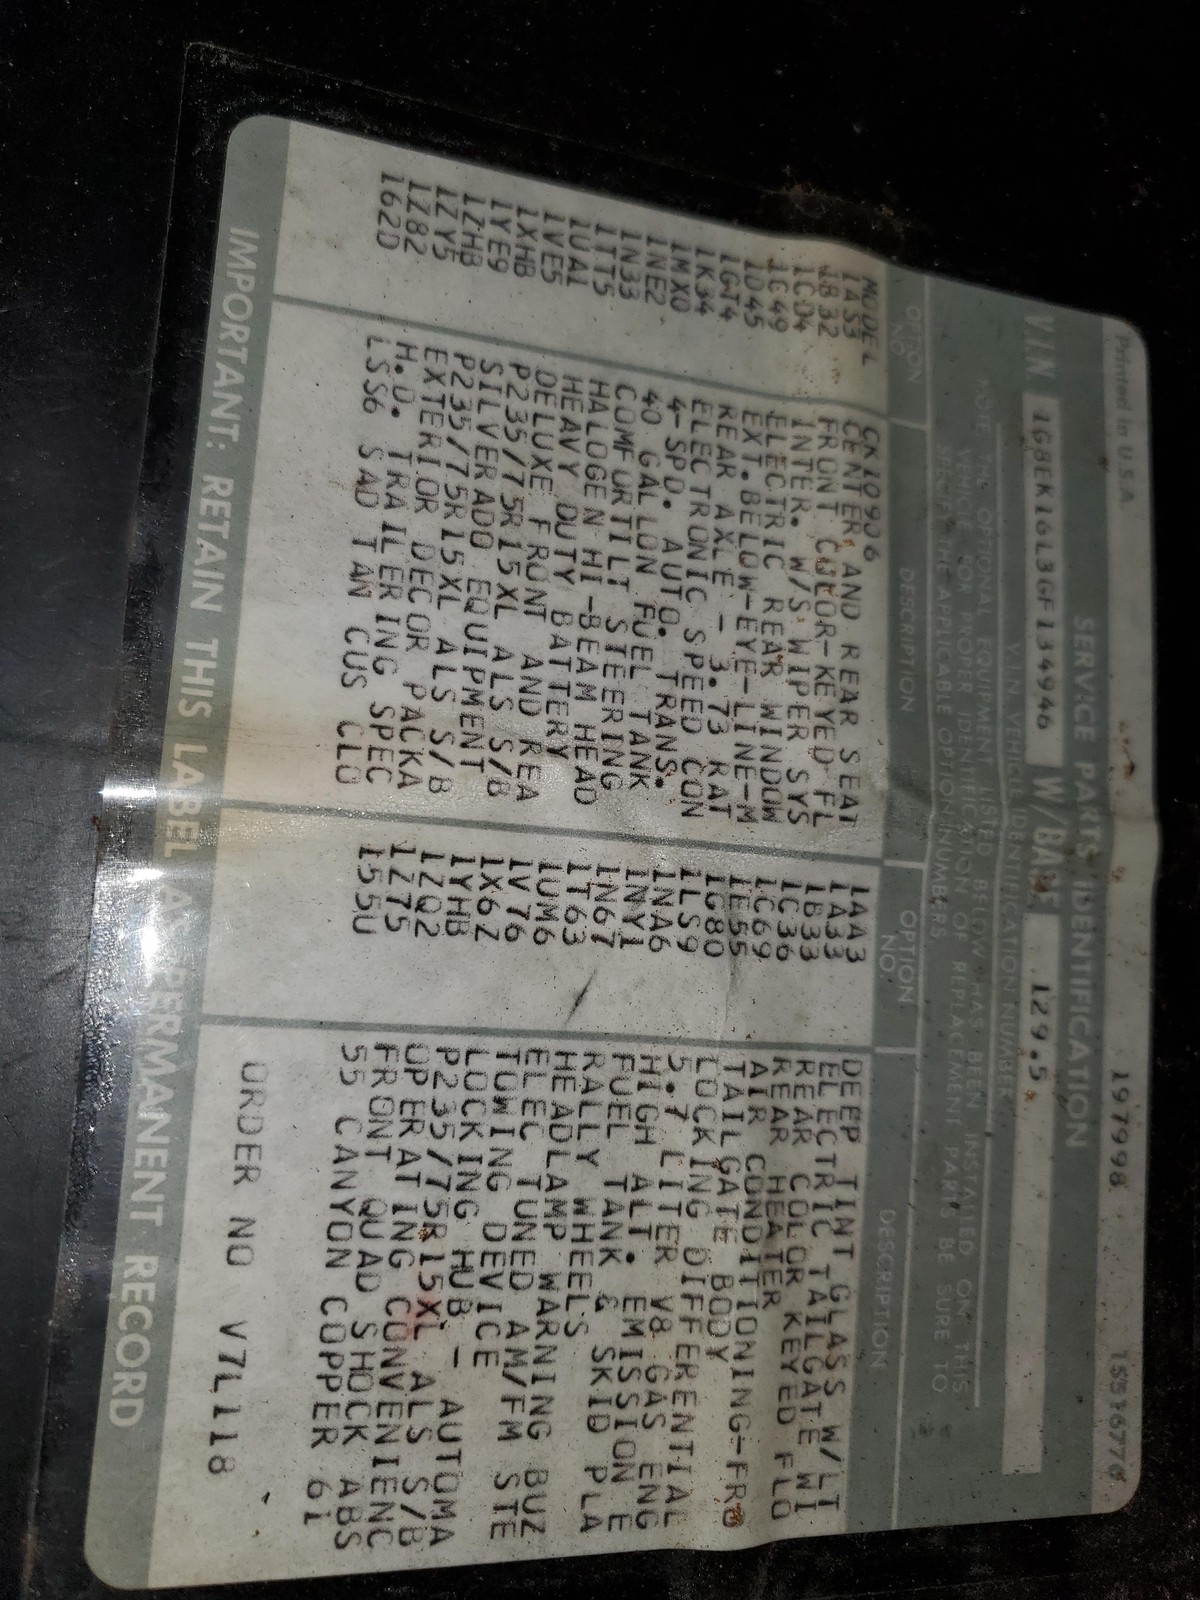 Printed in U.S.A
1979998
SERVICE PARTS IDENTIFICATION
VIN 1G8EK16L3GF134946 W/BASE 129.5
VEHICLE IDENTIFICATION NUMBER
NOTE: THE OPTIONAL EQUIPMENT LISTED BELOW HAS BEEN INSTALLED ON THIS
VEHICLE FOR PROPER IDENTIFICATION OF REPLACEMENT PARTS BE SURE TO
SPECIFY THE APPLICABLE OPTION NUMBERS
OPTION NO. DESCRIPTION OPTION NO. DESCRIPTION
MODEL CK10906 1AA3 DEEP TINT GLASS W/LT
1AS3 CENTER AND REAR SEAT 1A33 ELECTRIC TAILGATE WI
1B32 FRONT COLOR-KEYED FL 1B33 REAR COLOR KEYED FLO
1CD4 INTER. W/S WIPER SYS 1C36 REAR HEATER
1C49 ELECTRIC REAR WINDOW 1C69 AIR CONDITIONING-FRO
1D45 EXT.BELOW-EYE-LINE-M 1E55 TAILGATE BODY
1GT4 REAR AXLE - 3.73 RAT 1G80 LOCKING DIFFERENTIAL
1K34 ELECTRONIC SPEED CON 1LS9 5.7 LITER V8 GAS ENG
1MX0 4-SPD. AUTO. TRANS. 1NA6 HIGH ALT. EMISSION E
1NE2 40 GALLON FUEL TANK 1NY1 FUEL TANK & SKID PLA
1N33 COMFORTILT STEERING 1N67 RALLY WHEELS
1TT5 HALOGEN HI-BEAM HEAD 1T63 HEADLAMP WARNING BUZ
1UA1 HEAVY DUTY BATTERY 1UM6 ELEC TUNED AM/FM STE
1VE5 DELUXE FRONT AND REA 1V76 TOWING DEVICE
1XHB P235/75R15XL ALS S/B 1X6Z LOCKING HUB - AUTOMA
1YE9 SILVERADO EQUIPMENT 1YHB P235/75R15XL ALS S/B
1ZHB P235/75R15XL ALS S/B 1ZQ2 OPERATING CONVENIENC
1ZY5 EXTERIOR DECOR PACKA 1Z75 FRONT QUAD SHOCK ABS
1Z82 H.D. TRAILERING SPEC 155U 55 CANYON COPPER 61
162D LSS6 SAD TAN CUS CLO
ORDER NO V7L118
IMPORTANT: RETAIN THIS LABEL AS PERMANENT RECORD